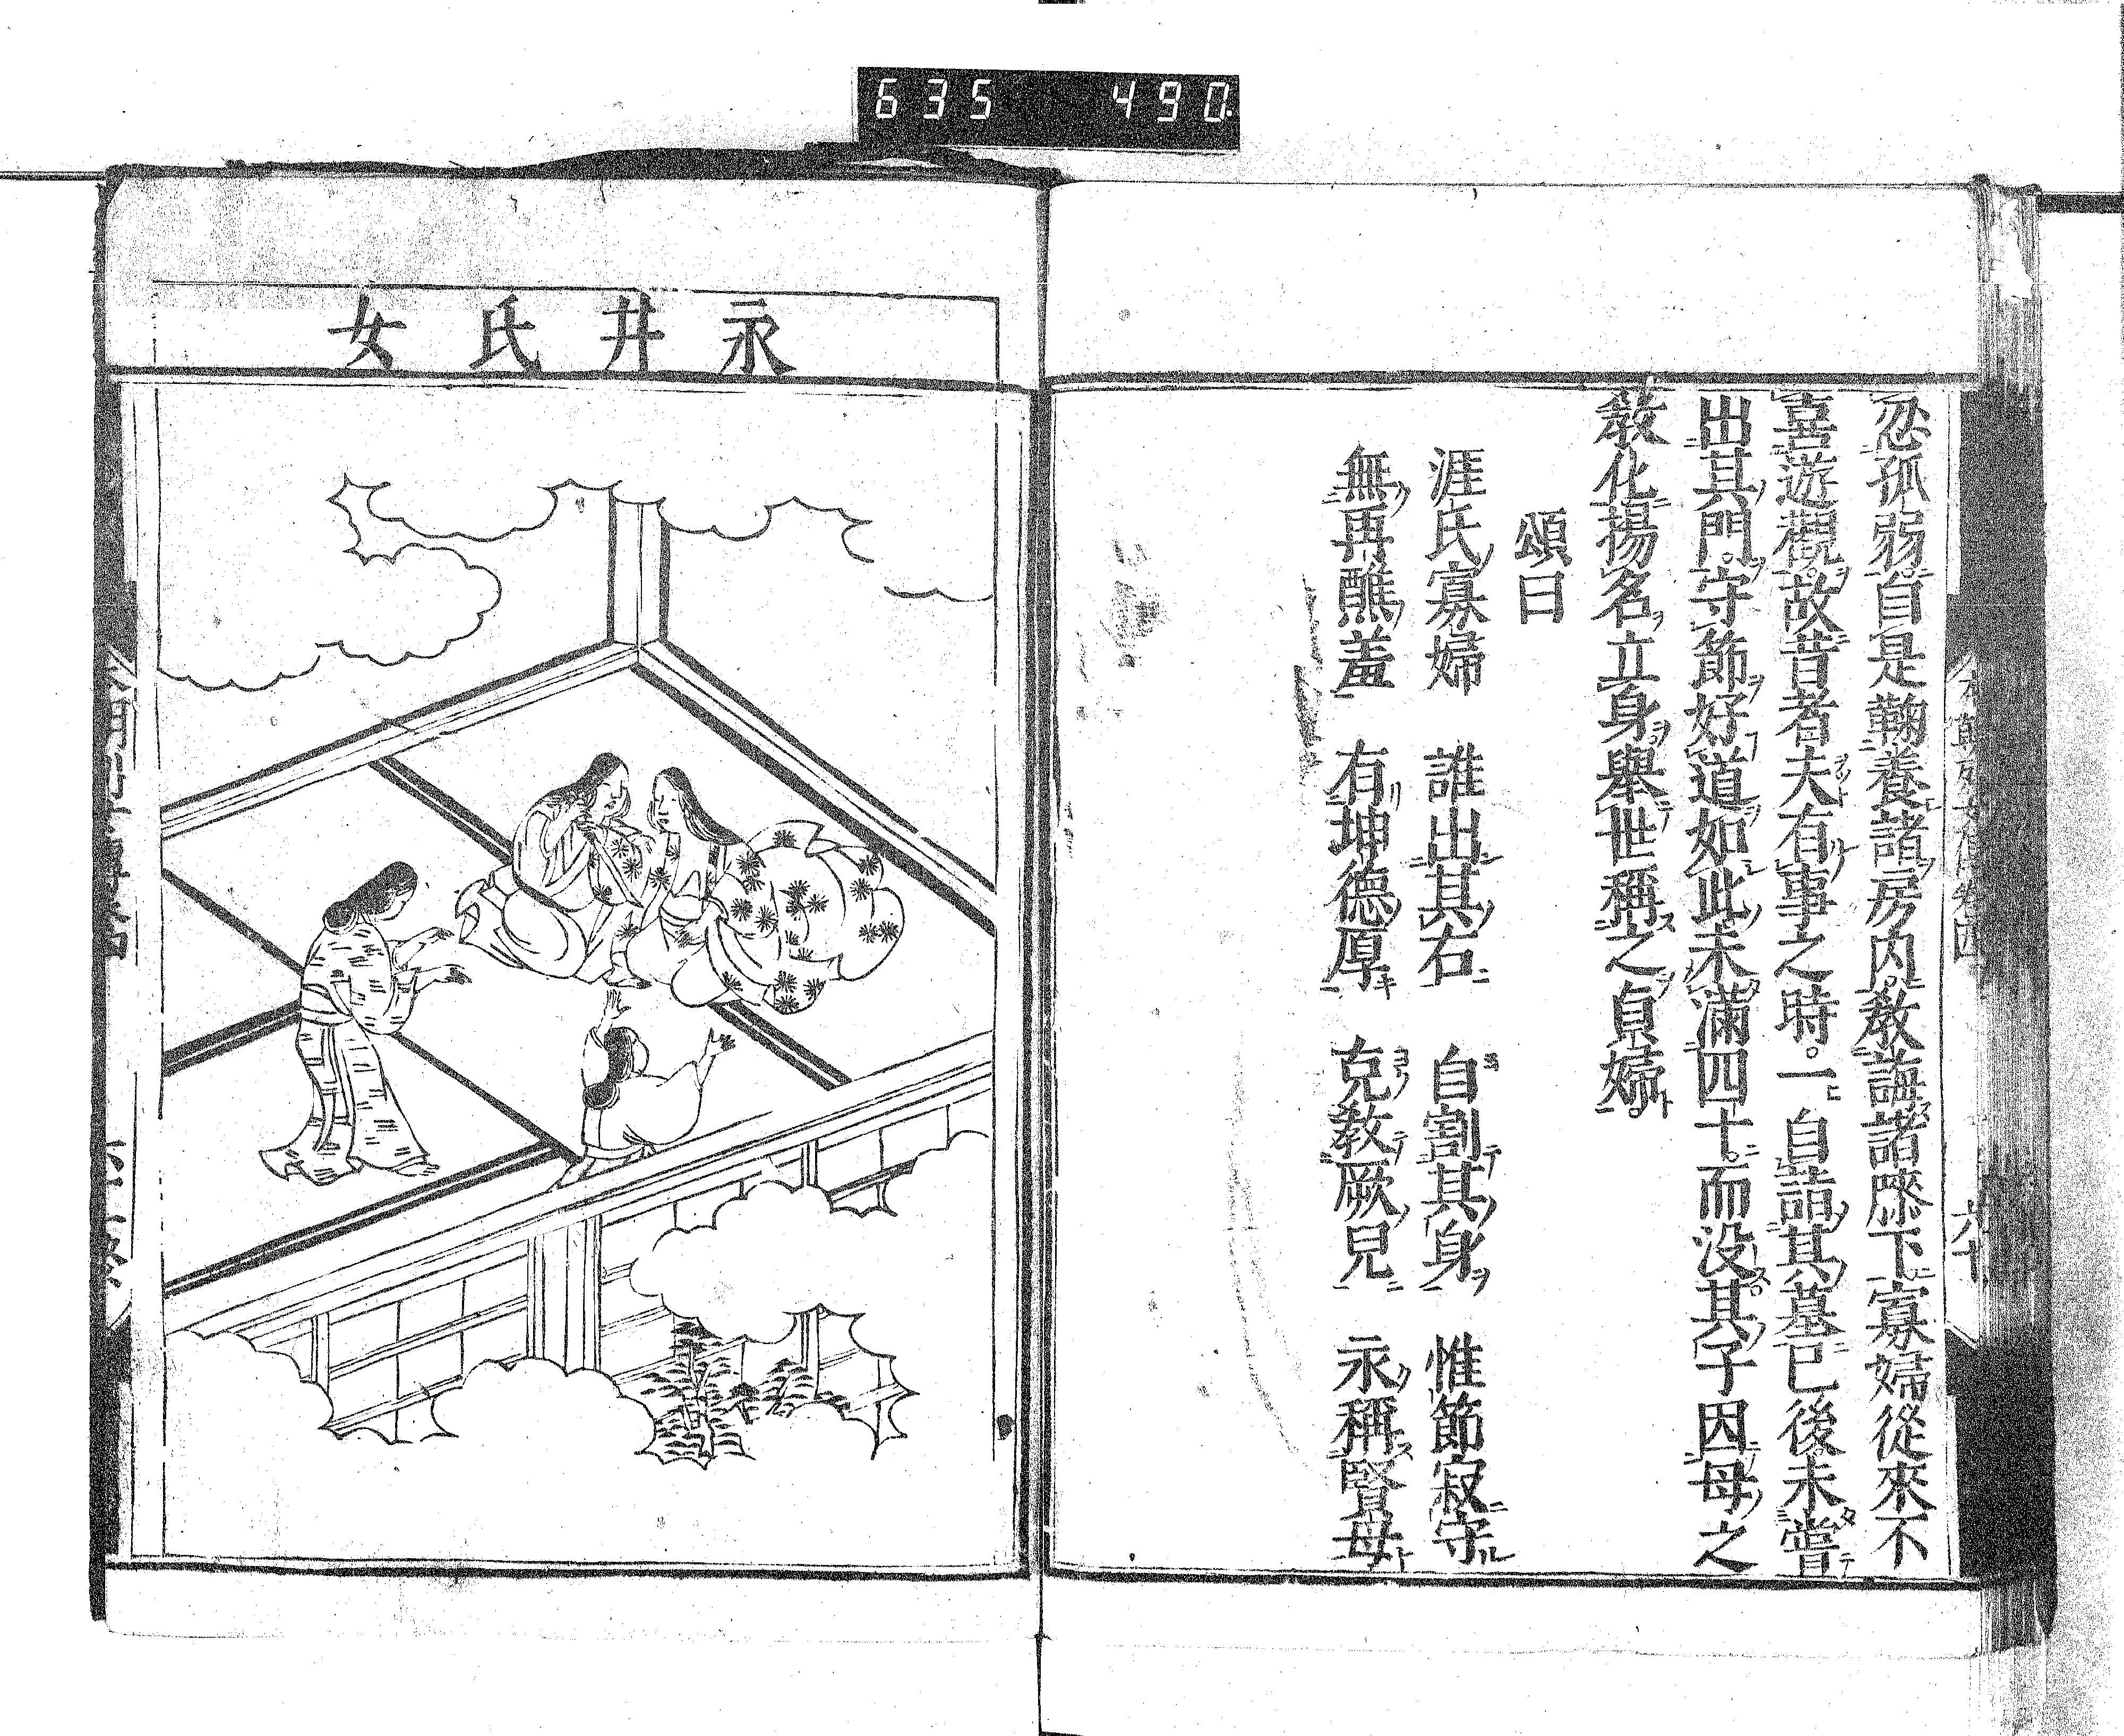 635 490
忍孤弱自是鞠養諸房内教誨諸滕下寡婦從來不
喜遊觀故昔者夫有事之時。一自詣其墓已後未嘗
出其門。守節好道如此未滿四十而没其子因母之
教化揚名立身擧世稱之貞婦
頌曰
涯氏寡婦 誰出其右 自割其身 惟節寂守
無再醮羞 有坤德厚 克教厥兒 永稱賢母
永井氏女